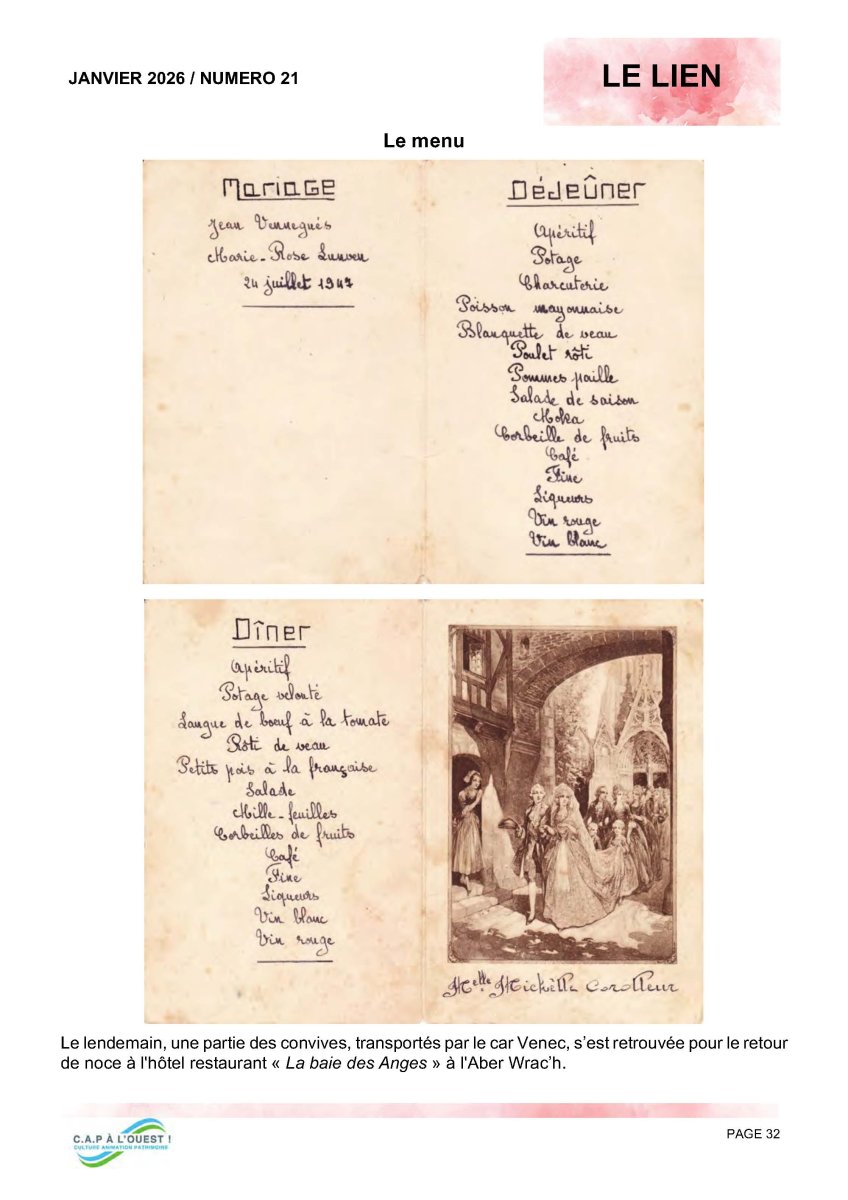 JANVIER 2026 / NUMERO 21
LE LIEN
Le menu
Mariage
Jean Vennegués
Marie-Rose Lunven
24 juillet 1947
Déjeûner
Apéritif
Potage
Charcuterie
Poisson mayonnaise
Blanquette de veau
Poulet rôti
Pommes paille
Salade de saison
Moka
Corbeille de fruits
Café
Fine
Liqueurs
Vin rouge
Vin blanc
Dîner
Apéritif
Potage velouté
Langue de boeuf à la tomate
Rôti de veau
Petits pois à la française
Salade
Mille-feuilles
Corbeilles de fruits
Café
Fine
Liqueurs
Vin blanc
Vin rouge
Melle Michèlle Corolleur
Le lendemain, une partie des convives, transportés par le car Venec, s’est retrouvée pour le retour
de noce à l'hôtel restaurant « La baie des Anges » à l'Aber Wrac’h.
C.A.P À L'OUEST !
CULTURE ANIMATION PATRIMOINE
PAGE 32